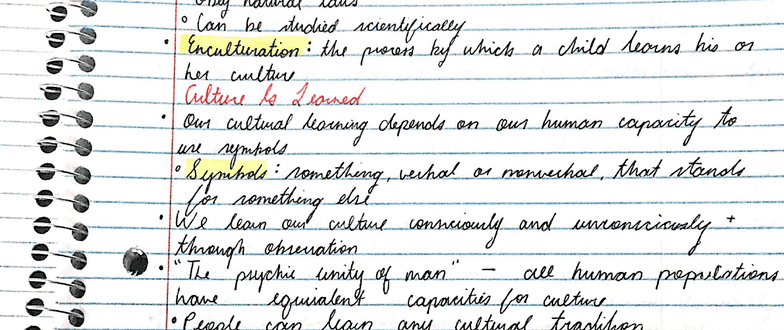 obey natural laws
° Can be studied scientifically
• Enculturation: the process by which a child learns his or
her culture
Culture Is Learned
• Our cultural learning depends on our human capacity to
use symbols
° Symbols: something, verbal or nonverbal, that stands
for something else
• We learn our culture consciously and unconsciously +
through observation
• "The psychic unity of man" - all human populations
have equivalent capacities for culture
• People can learn any cultural tradition